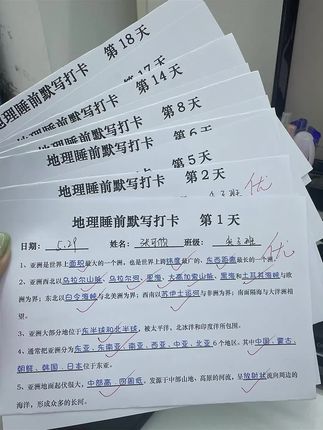 地理睡前默写打卡 第18天
地理睡前默写打卡 第17天
地理睡前默写打卡 第14天
地理睡前默写打卡 第8天
地理睡前默写打卡 第6天
地理睡前默写打卡 第5天
地理睡前默写打卡 第2天
优
地理睡前默写打卡 第1天
日期: 5.29 姓名: 班级: 优
1、亚洲是世界上面积最大的一个洲,也是世界上跨纬度最广的、东西距离最长的一个洲。
2、亚洲西北以乌拉尔山脉、乌拉尔河、里海、大高加索山脉、黑海和土耳其海峡与欧
洲为界;东北以白令海峡与北美洲为界;西南以苏伊士运河与非洲为界;南面隔海与大洋洲相
望。
3、亚洲大部分地位于东半球和北半球,被太平洋、北冰洋和印度洋所包围。
4、通常把亚洲分为东亚、东南亚、南亚、西亚、中亚、北亚6个地区。其中中国、蒙古、
朝鲜、韩国、日本位于东亚。
5、亚洲地面起伏很大,中部高、四周低,发源于中部山地、高原的河流,呈放射状流向周边的
海洋,形成众多的长河。